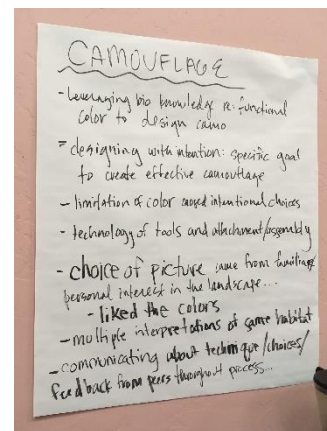 CAMOUFLAGE
- Leveraging bio knowledge re: functional
color to design camo
- designing with intention: specific goal
to create effective camouflage
- limitation of color caused intentional choices
- technology of tools and attachment/assembly
- choice of picture came from familiar
personal interest in the landscape...
- liked the colors
- multiple interpretations of same habitat
- communicating about technique/choices/
feedback from peers throughout process...